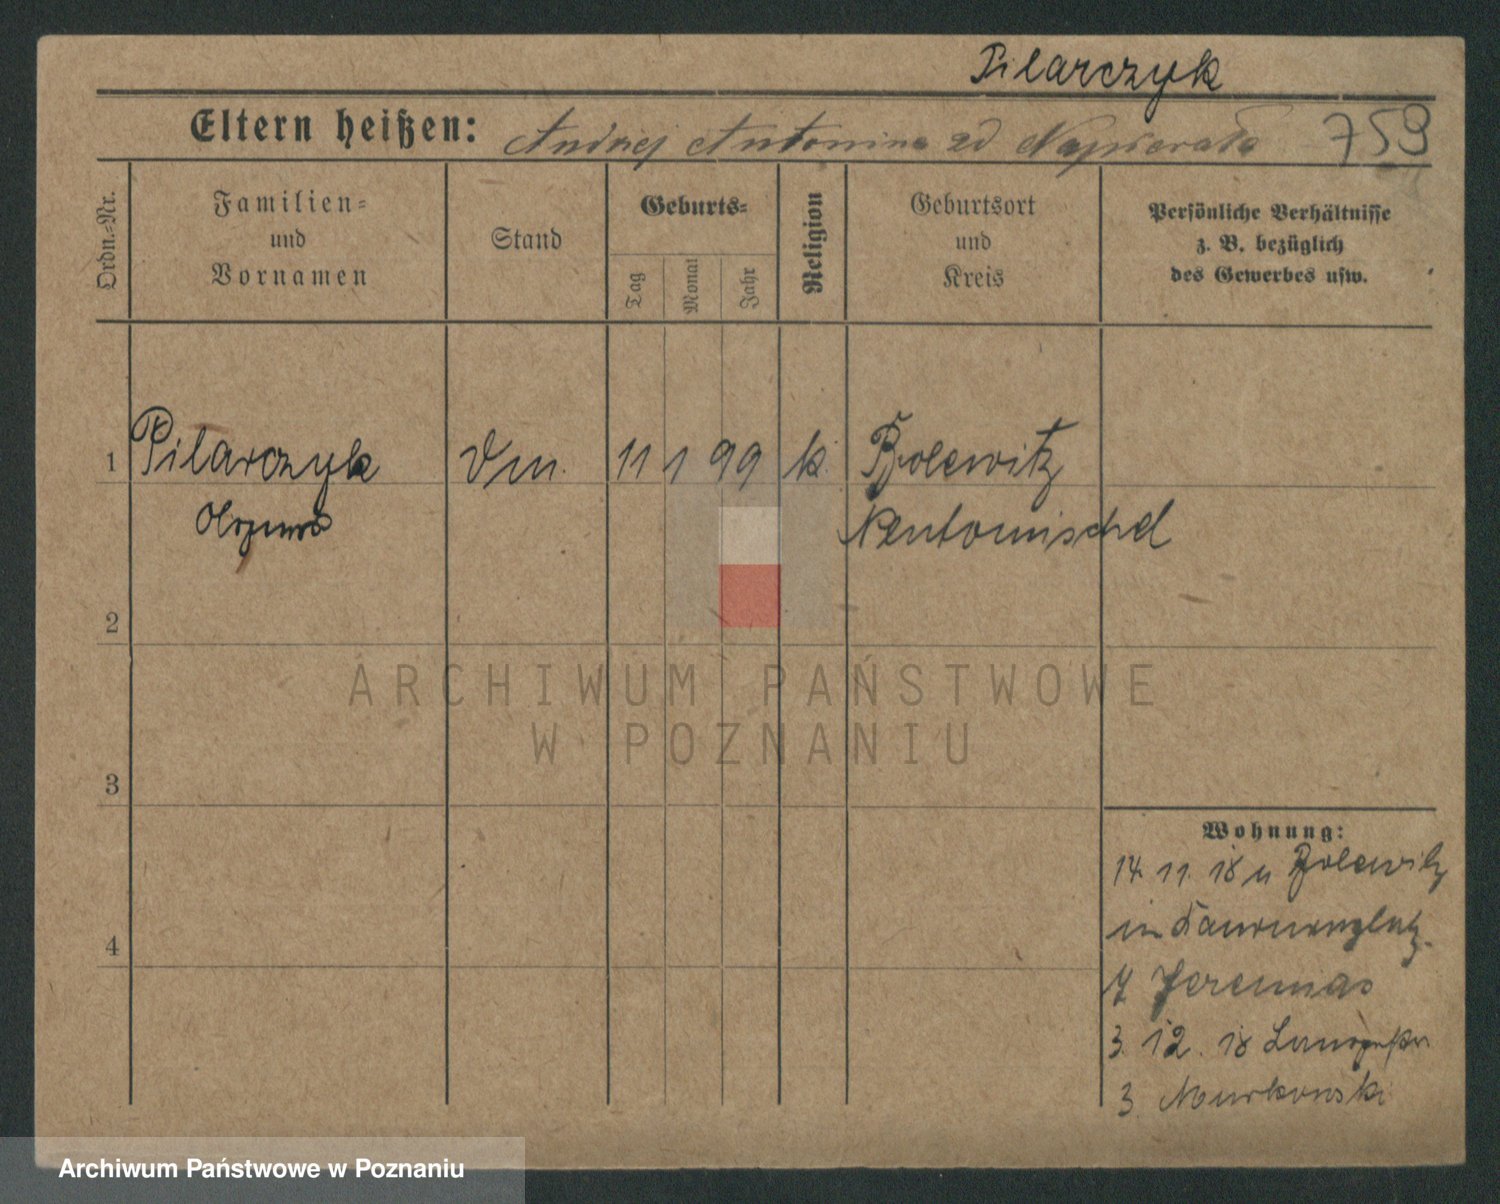 Pilarczyk
Eltern heißen: Andrzej Antonina zd Napierała 759
Ordn.-Nr.
Familien-
und
Vornamen
Stand
Geburts-
Tag
Monat
Jahr
Religion
Geburtsort
und
Kreis
Persönliche Verhältnisse
z. B. bezüglich
des Gewerbes usw.
1 Pilarczyk Dm. 11 1 99 k. Bolewitz
Neutomischel
2
3
4
Wohnung:
14. 11. 18 u Bolewitz
in
7 Jeremias
3. 12. 18
3. Murkowski
ARCHIWUM PAŃSTWOWE
W POZNANIU
Archiwum Państwowe w Poznaniu